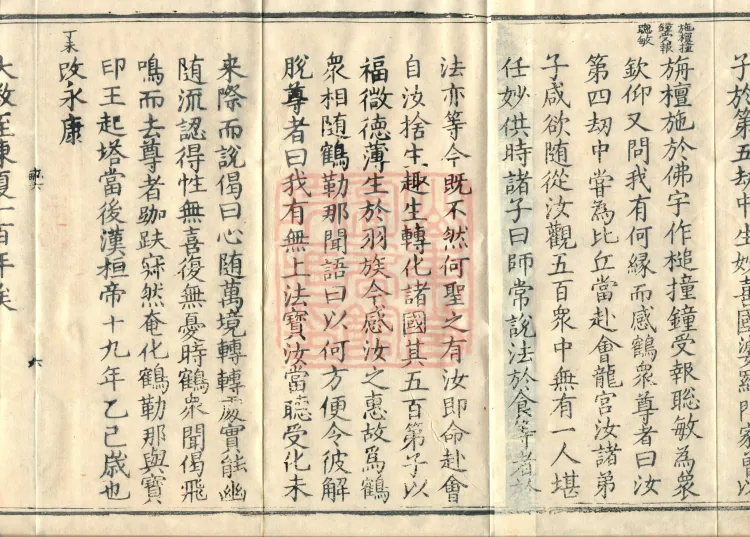 子於第五劫中生妙喜國婆羅門家曾以
旃檀撞
鐘受報
聰敏
旃檀施於佛宇作槌撞鐘受報聰敏為衆
欽仰又問我有何緣而感鶴衆尊者曰汝
第四劫中甞為比丘當赴會龍宮汝諸弟
子咸欲随從汝觀五百衆中無有一人堪
任妙供時諸子曰師常說法於食等者於
法亦等今既不然何聖之有汝即命赴會
自汝捨生趣生轉化諸國其五百第子以
福微徳薄生於羽族今感汝之惠故為鶴
衆相随鶴勒那聞語曰以何方便令彼解
脫尊者曰我有無上法寶汝當聴受化未
来際而說偈曰心随萬境轉轉處實能幽
随流認得性無喜復無憂時鶴衆聞偈飛
鳴而去尊者跏趺㝛然奄化鶴勒那與寶
印王起塔當後漢桓帝十九年乙巳歳也
丁未
改永康
六
大教至東夏一百年矣